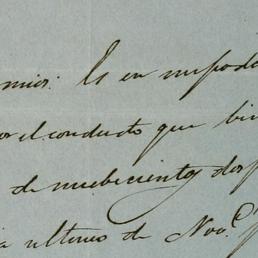 mios: Es en mi pode
or el conducto que
de nuebecientos dos p
ultimo de Nov.e